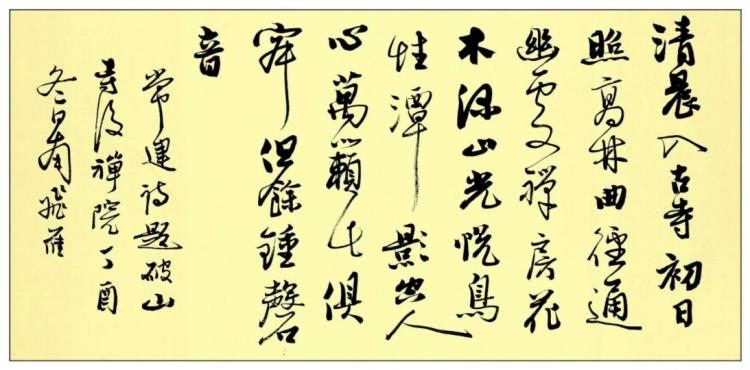 清晨入古寺初日
照高林曲徑通
幽處禪房花
木深山光悦鳥
性潭影空人
心萬籟此俱
寂但餘鍾磬
音
常建詩題破山
寺後禪院丁酉
冬日南飛雁